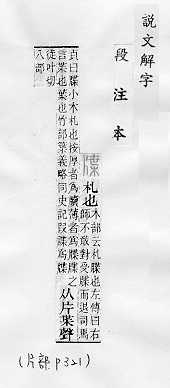 說文解字
段注本
牒
札也
木部云札牒也左傳曰右
師不敢對受牒而退司馬
貞曰牒小木札也按厚者爲牘薄者爲牒牒之
言枼也葉也竹部䈎義略同史記叚諜爲牒
从片枼聲
徒叶切
八部
(片部 p321)